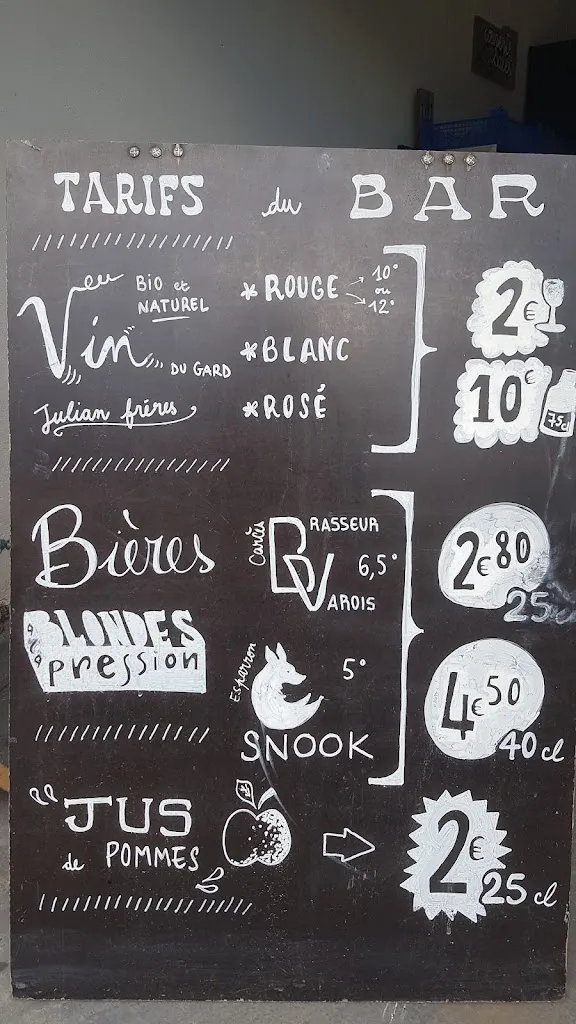 TARIFS du BAR
Vin
en
BIO et
NATUREL
DU GARD
Julian frères
* ROUGE
10°
ou
12°
* BLANC
* ROSÉ
2€
10€
75cl
Bières
BLONDES
pression
Carcès
BRASSEUR
VAROIS
6,5°
Esparron
5°
SNOOK
2€80
25cl
4€50
40cl
JUS
de POMMES
2€
25cl